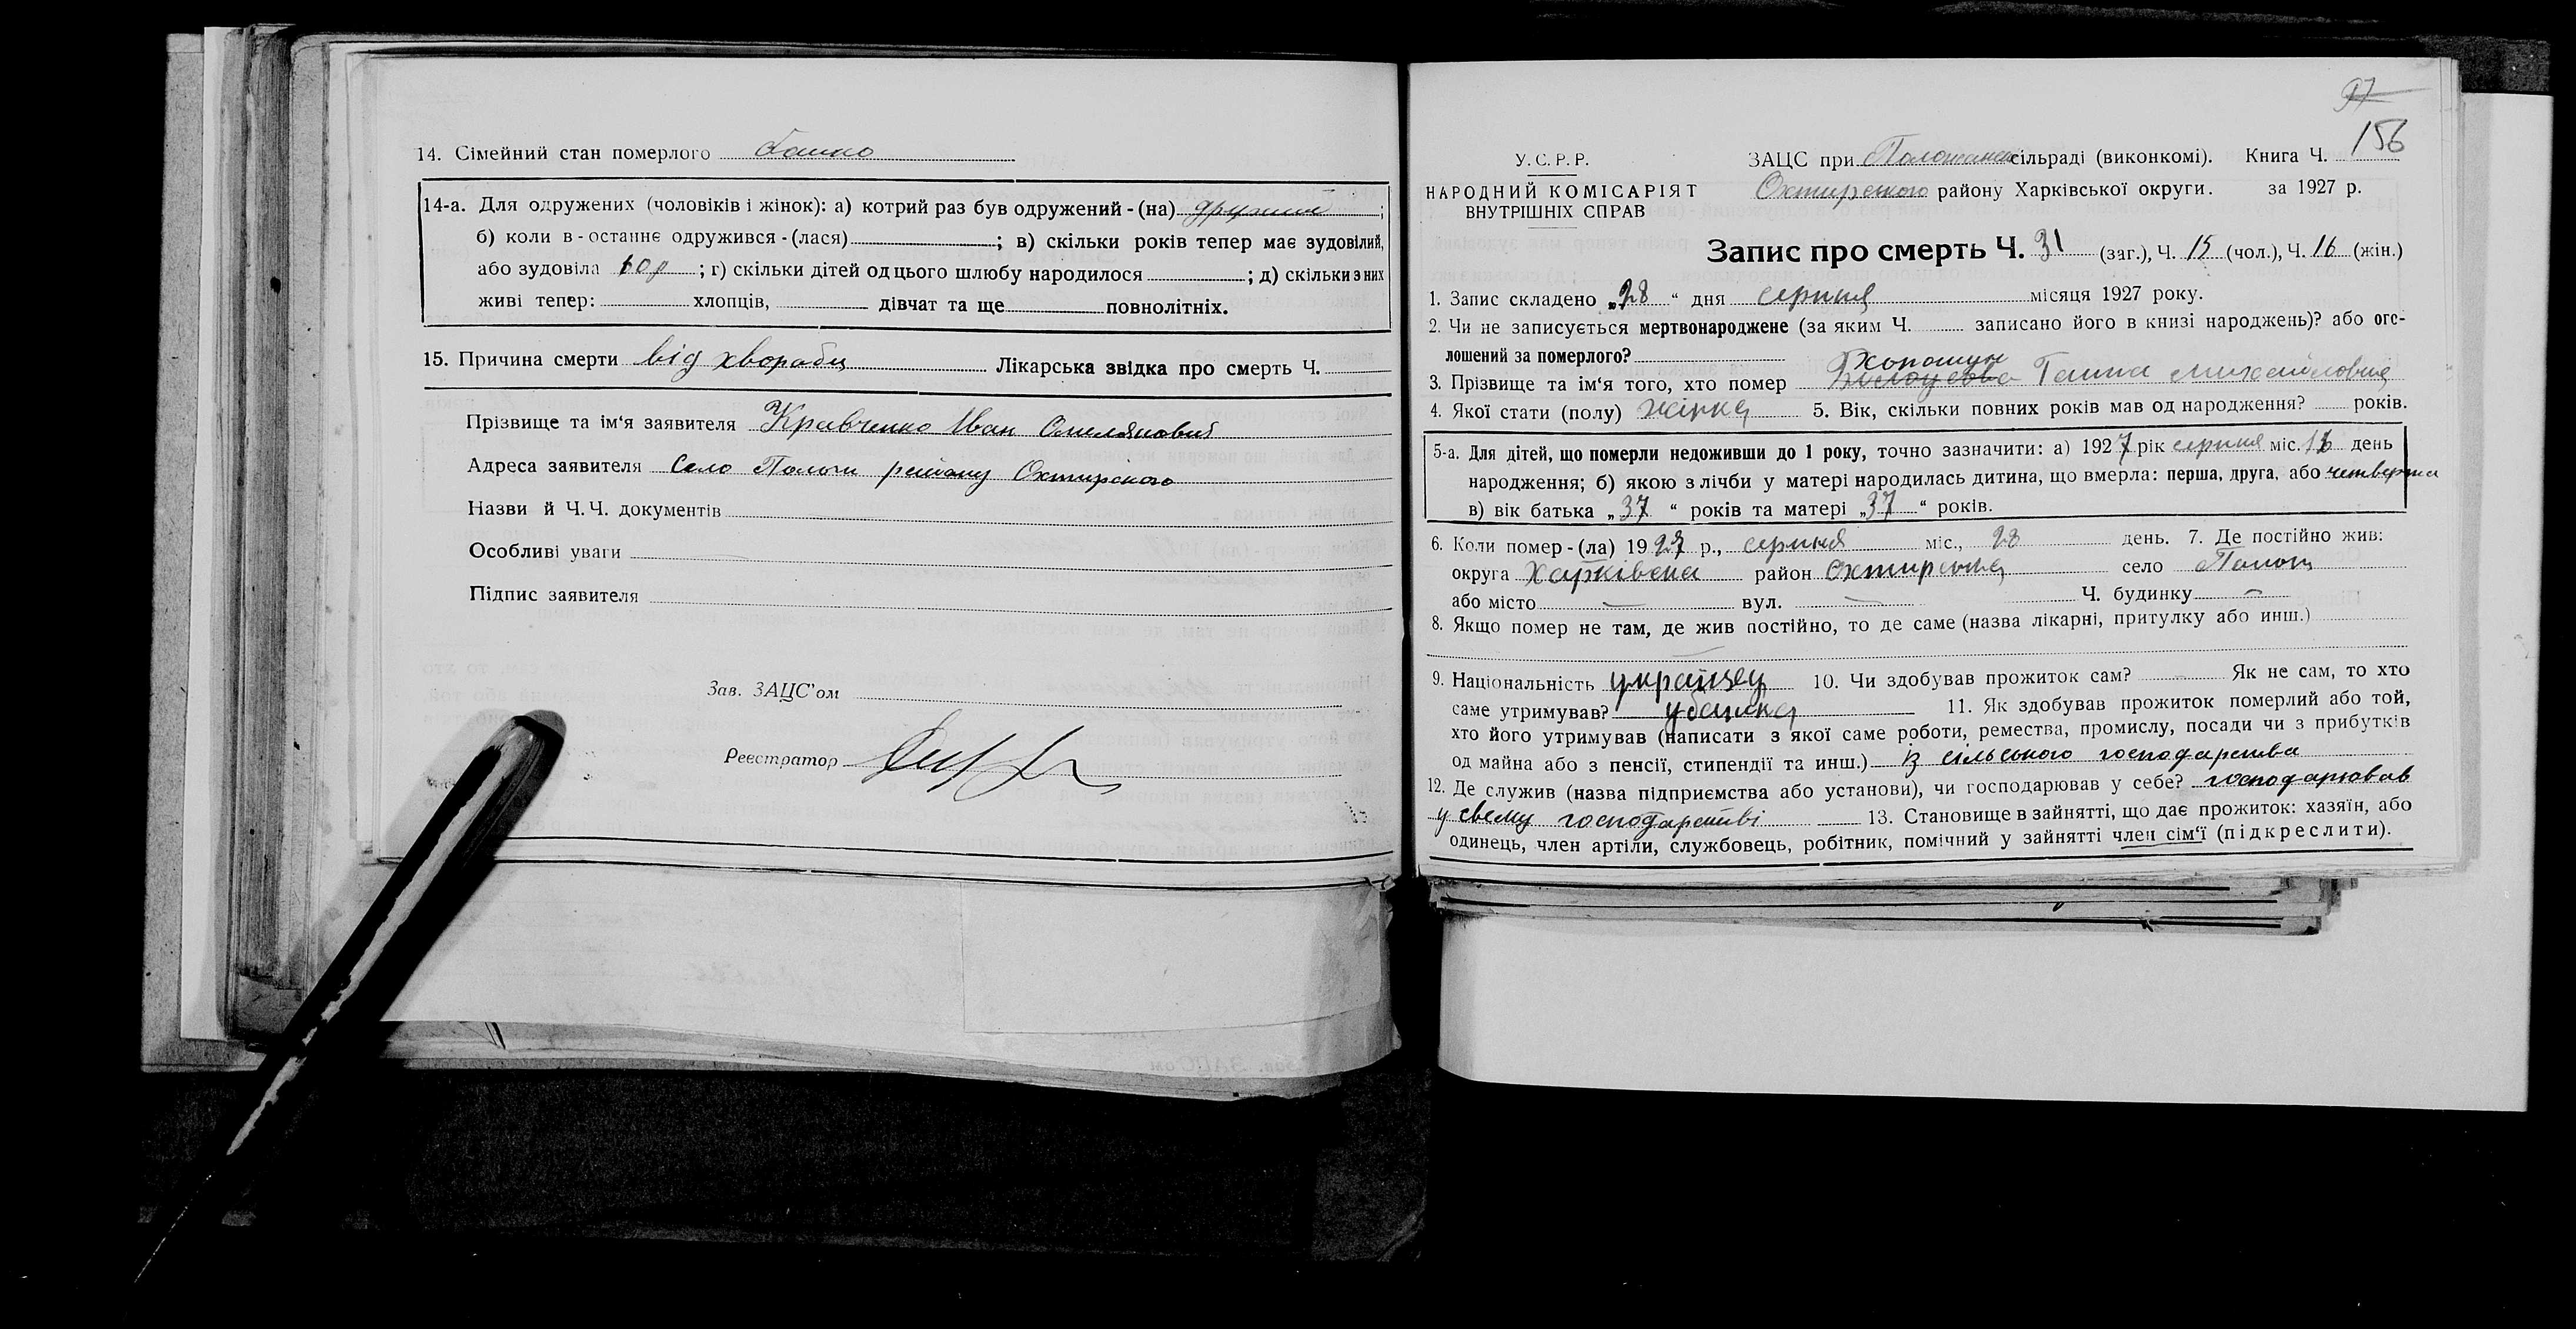 14. Сімейний стан померлого батько
14-а. Для одружених (чоловіків і жінок): а) котрий раз був одружений - (на) ;
б) коли в-останнє одружився - (лася) ; в) скільки років тепер має зудовілий,
або зудовіла 60 р ; г) скільки дітей од цього шлюбу народилося ; д) скільки з них
живі тепер: хлопців, дівчат та ще повнолітніх.
15. Причина смерти від хвороби Лікарська звідка про смерть Ч.
Прізвище та ім'я заявителя Кравченко Іван Омелянович
Адреса заявителя Село Пологи району Охтирского
Назви й Ч.Ч. документів
Особливі уваги
Підпис заявителя
Зав. ЗАЦС'ом
Реєстратор
97
156
У.С.Р.Р.
НАРОДНИЙ КОМІСАРІЯТ
ВНУТРІШНІХ СПРАВ
ЗАЦС при сільраді (виконкомі). Книга Ч.
Охтирського району Харківської округи. за 1927 р.
Запис про смерть Ч. 31 (заг.), Ч. 15 (чол.), Ч. 16 (жін.)
1. Запис складено „28“ дня серпня місяця 1927 року.
2. Чи не записується мертвонароджене (за яким Ч. записано його в книзі народжень)? або ого-
лошений за померлого?
3. Прізвище та ім'я того, хто помер Ганна Михайловна
4. Якої стати (полу) жінка 5. Вік, скільки повних років мав од народження? років.
5-а. Для дітей, що померли недоживши до 1 року, точно зазначити: а) 1927 рік серпня міс. день
народження; б) якою з лічби у матері народилась дитина, що вмерла: перша, друга, або четверта
в) вік батька „37“ років та матері „37“ років.
6. Коли помер - (ла) 1927 р., серпня міс., 28 день. 7. Де постійно жив:
округа Харківська район Охтирський село Пологи
або місто — вул. — Ч. будинку —
8. Якщо помер не там, де жив постійно, то де саме (назва лікарні, притулку або инш.)
9. Національність українец 10. Чи здобував прожиток сам? Як не сам, то хто
саме утримував? у батька 11. Як здобував прожиток померлий або той,
хто його утримував (написати з якої саме роботи, ремества, промислу, посади чи з прибутків
од майна або з пенсії, стипендії та инш.) із сільського господарства
12. Де служив (назва підприємства або установи), чи господарював у себе? господарював
у своему господарстві 13. Становище в зайнятті, що дає прожиток: хазяїн, або
одинець, член артіли, службовець, робітник, помічний у зайнятті член сім'ї (підкреслити).